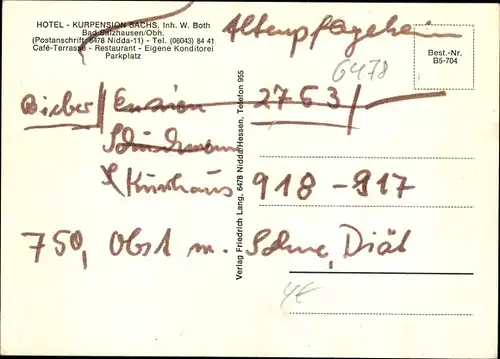 HOTEL - KURPENSION SACHS, Inh. W. Both
Bad Salzhausen/Obh.
(Postanschrift: 6478 Nidda-11) - Tel. (06043) 84 41
Café-Terrasse - Restaurant - Eigene Konditorei
Parkplatz
Altenpflegeheim
Best.-Nr.
B5-704
6478
Bieber 2763
Kurhaus 918-917
750, Obst m. Sahne, Diät
Verlag Friedrich Lang, 6478 Nidda/Hessen, Telefon 955
4€